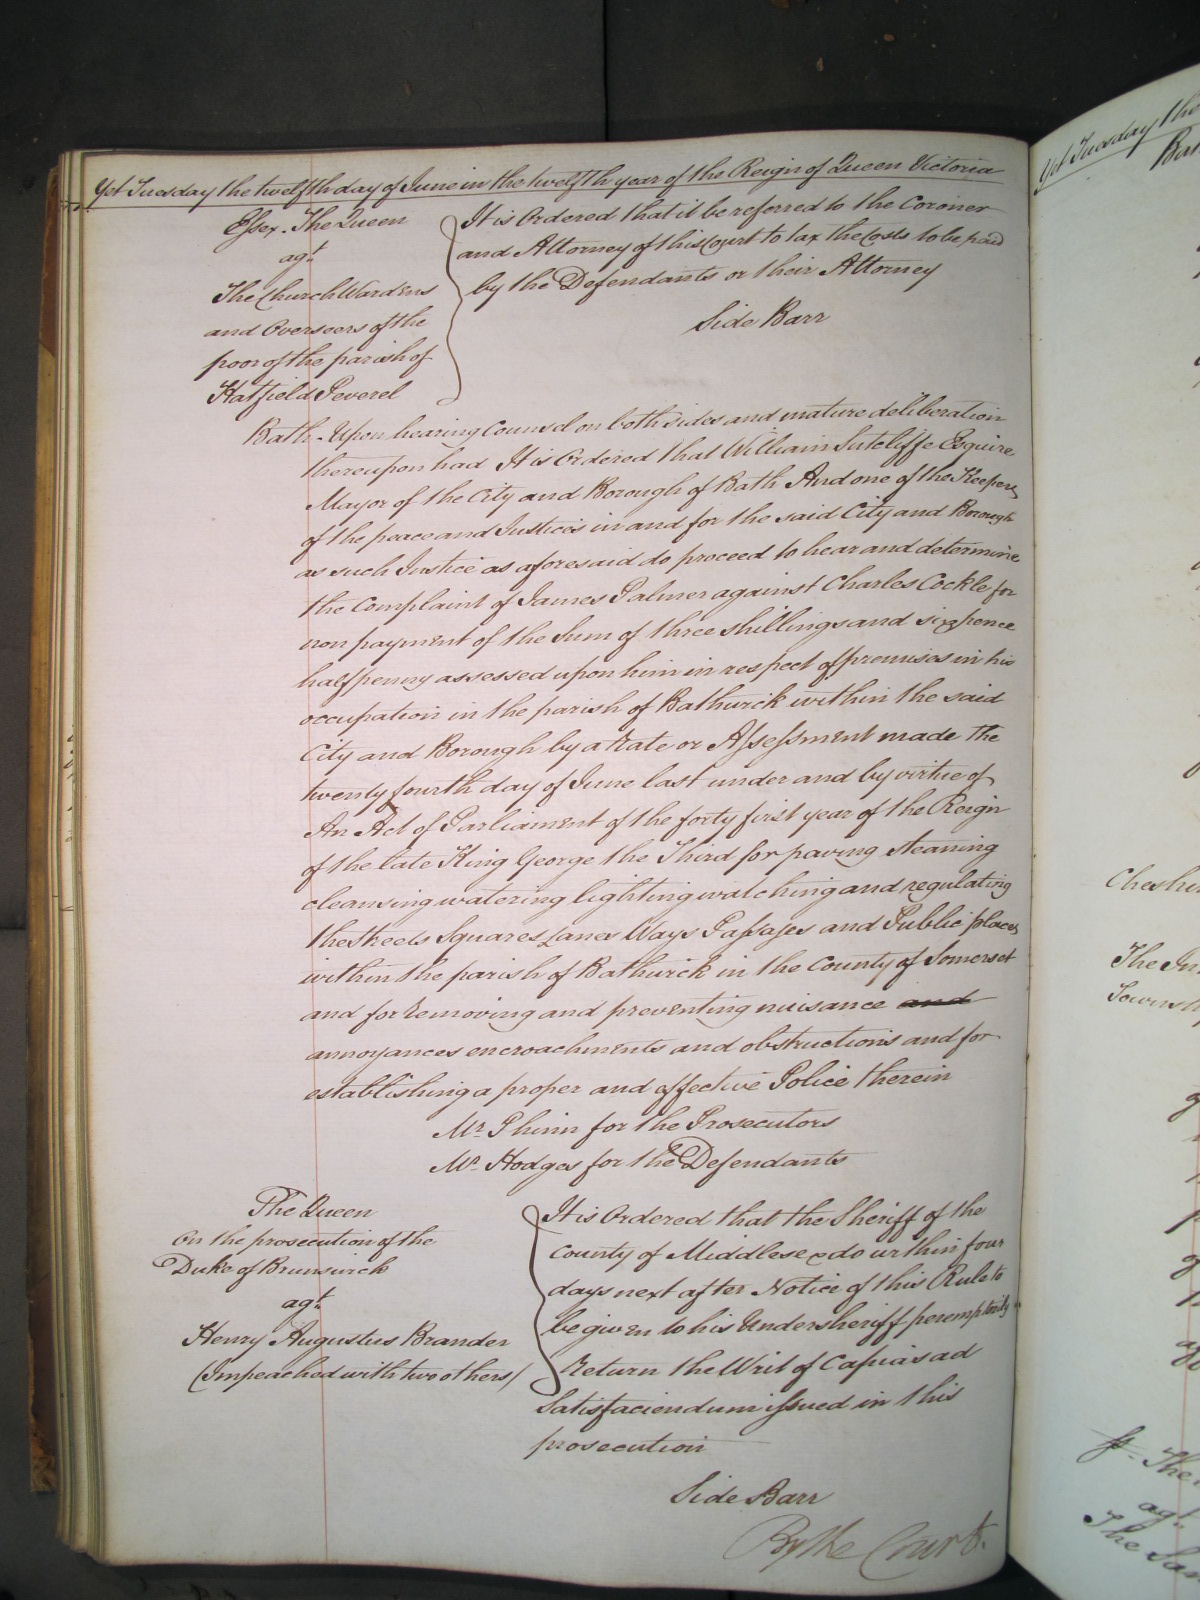 Yet Tuesday the twelfth day of June in the twelfth year of the Reign of Queen Victoria
Essex. The Queen
agt
The Church Wardens
and Overseers of the
poor of the parish of
Hatfield Peverel
It is Ordered that it be referred to the Coroner
and Attorney of this Court to tax the Costs to be paid
by the Defendants or their Attorney
Side Barr
Bath. Upon hearing Counsel on both sides and mature deliberation
thereupon had It is Ordered that William Sutcliffe Esquire
Mayor of the City and Borough of Bath And one of the Keepers
of the peace and Justices in and for the said City and Borough
as such Justice as aforesaid do proceed to hear and determine
the Complaint of James Palmer against Charles Cockle for
non payment of the Sum of three shillings and sixpence
halfpenny assessed upon him in respect of premises in his
occupation in the parish of Bathwick within the said
City and Borough by a Rate or Assessment made the
twenty fourth day of June last under and by virtue of
An Act of Parliament of the forty first year of the Reign
of the late King George the Third for paving steaning
cleansing watering lighting watching and regulating
the Streets Squares Lanes Ways Passages and Public places
within the parish of Bathwick in the County of Somerset
and for Removing and preventing nuisance and
annoyances encroachments and obstructions and for
establishing a proper and effective Police therein
Mr. Phinn for the Prosecutors
Mr. Hodges for the Defendants
The Queen
on the prosecution of the
Duke of Brunswick
agt
Henry Augustus Brander
(Impeached with two others)
It is Ordered that the Sheriff of the
County of Middlesex do within four
days next after Notice of this Rule to
be given to his Undersheriff peremptorily
Return the Writ of Capias ad
Satisfaciendum issued in this
prosecution
Side Barr
By the Court.
Yet Tuesday the
Cheshi
The In
Towns
The
agt
The